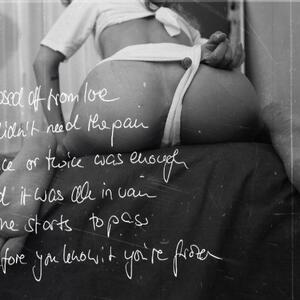 osed off from love
didn't need the pain
ce or twice was enough
d it was all in vain
me starts to pass
fore you know it you're frozen